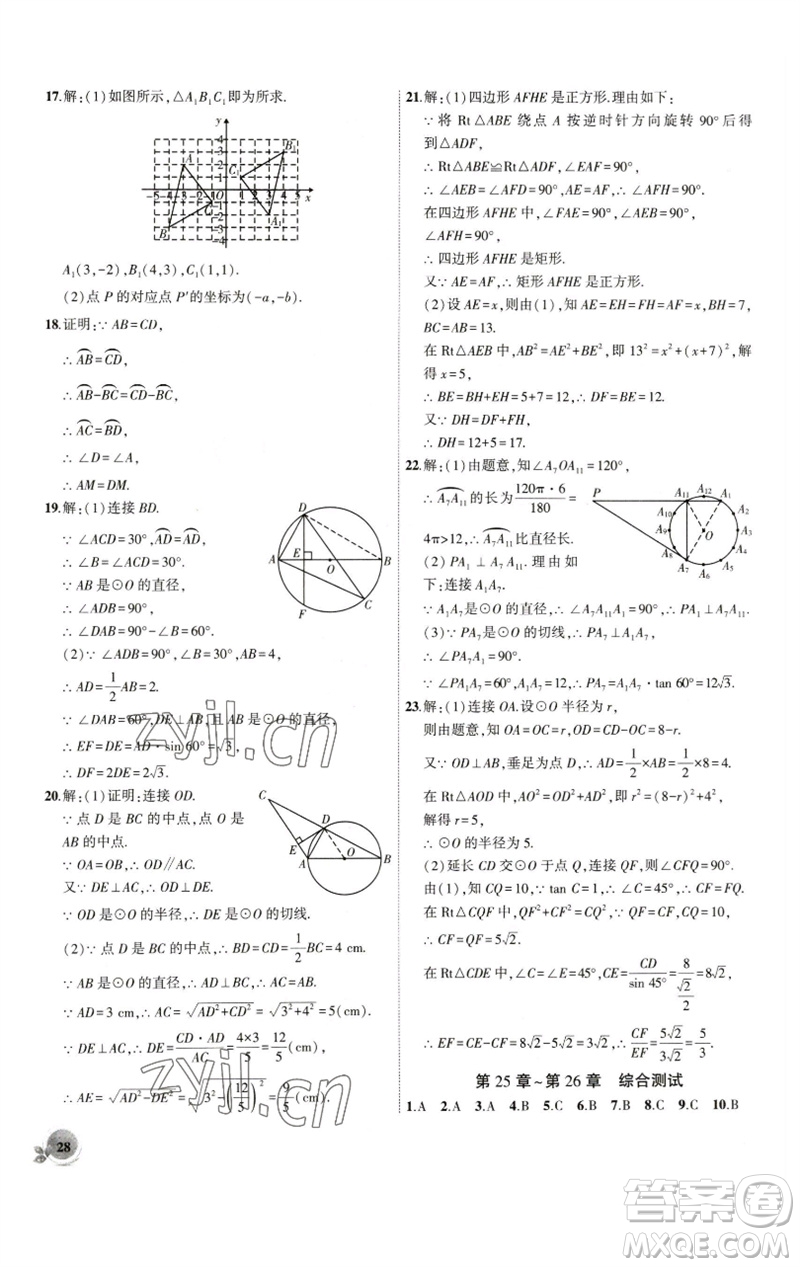 17.解:(1)如图所示,△A₁B₁C₁即为所求.
y
4
3
2
1
-5 -4 -3 -2 -1 O 1 2 3 4 5 x
-1
-2
-3
-4
A B C A₁ B₁ C₁
A₁(3,-2),B₁(4,3),C₁(1,1).
(2)点 P 的对应点 P′的坐标为(-a,-b).
18.证明:∵ AB=CD,
∴ ⌒AB=⌒CD,
∴ ⌒AB-⌒BC=⌒CD-⌒BC,
∴ ⌒AC=⌒BD,
∴ ∠D=∠A,
∴ AM=DM.
19.解:(1)连接 BD.
∵ ∠ACD=30°,⌒AD=⌒AD,
∴ ∠B=∠ACD=30°.
∵ AB 是⊙O 的直径,
∴ ∠ADB=90°,
∴ ∠DAB=90°-∠B=60°.
(2)∵ ∠ADB=90°,∠B=30°,AB=4,
∴ AD=1/2 AB=2.
∵ ∠DAB=60°,DE⊥AB,且 AB 是⊙O 的直径,
∴ EF=DE=AD·sin 60°=√3,
∴ DF=2DE=2√3.
D
A E O B
F C
20.解:(1)证明:连接 OD.
∵ 点 D 是 BC 的中点,点 O 是
AB 的中点.
∵ OA=OB,∴ OD∥AC.
又∵ DE⊥AC,∴ OD⊥DE.
∵ OD 是⊙O 的半径,∴ DE 是⊙O 的切线.
(2)∵ 点 D 是 BC 的中点,∴ BD=CD=1/2 BC=4 cm.
∵ AB 是⊙O 的直径,∴ AD⊥BC,
∵ AD=3 cm,∴ AC=√(AD²+CD²)=√(3²+4²)=5(cm).
∵ DE⊥AC,∴ DE=CD·AD/AC=4×3/5=12/5(cm)
∴ AE=√(AD²-DE²)=√(3²-(12/5)²)=9/5(cm).
C
D
E
A O B
28
21.解:(1)四边形 AFHE 是正方形.理由如下:
∵ 将 Rt△ABE 绕点 A 按逆时针方向旋转 90°后得
到△ADF,
∴ Rt△ABE≌Rt△ADF,∠EAF=90°,
∴ ∠AEB=∠AFD=90°,∴ ∠AEH=90°.
在四边形 AFHE 中,∠FAE=90°,∠AEH=90°,
∠AFH=90°,
∴ 四边形 AFHE 是矩形.
又∵ AE=AF,∴ 矩形 AFHE 是正方形.
(2)设 AE=x,则由(1),知 AE=EH=FH=AF=x,BH=7,
BC=AB=13.
在 Rt△AEB 中,AB²=AE²+BE²,即 13²=x²+(x+7)²,解
得 x=5,
∴ BE=BH+EH=5+7=12,∴ DF=BE=12.
又∵ DH=DF+FH,
∴ DH=12+5=17.
22.解:(1)由题意,知∠A₇OA₁₁=120°,
∴ ⌒A₇A₁₁的长为120π·6/180=
4π>12,∴ ⌒A₇A₁₁比直径长.
(2) PA₁⊥A₇A₁₁.理由如
下:连接 A₁A₇.
∵ A₁A₇是⊙O 的直径,∴ ∠A₇A₁₁A₁=90°,∴ PA₁⊥A₇A₁₁.
(3)∵ PA₇是⊙O 的切线,∴ PA₇⊥A₁A₇,
∴ ∠PA₇A₁=90°.
∵ ∠PA₁A₇=60°,A₁A₇=12,∴ PA₇=A₁A₇·tan 60°=12√3.
P A₁₁ A₁₂ A₁
A₁₀ A₂
A₉ O A₃
A₈ A₄
A₇ A₆ A₅
23.解:(1)连接 AO.设⊙O 半径为 r,
则由题意,知 OA=OE=r,CO=CD-OD=8-r.
又∵ OD⊥AB,垂足为点 D,∴ AD=1/2×AB=1/2×8=4.
在 Rt△AOD 中,AO²=OD²+AD²,即 r²=(8-r)²+4²,
解得 r=5,
∴ ⊙O 的半径为 5.
(2)延长 CD 交⊙O 于点 Q,连接 FQ,∴ ∠CFQ=90°.
由(1),知 CQ=10,∵ tan C=1,∴ ∠C=45°,∴ CF=FQ.
在 Rt△CQF 中,CQ²=FQ²+CF²,∵ CF=FQ,CQ=10,
∴ CF=5√2.
在 Rt△CDE 中,∠C=45°,CE=CD/sin 45°=8/(√2/2)=8√2,
∴ EF=CE-CF=8√2-5√2=3√2,∴ CF/EF=5√2/3√2=5/3.
第 25 章~第 26 章 综合测试
1.A 2.A 3.A 4.A 5.B 6.B 7.B 8.C 9.C 10.B
zyjl.cn
zyjl.cn
答案圈
MXQE.COM